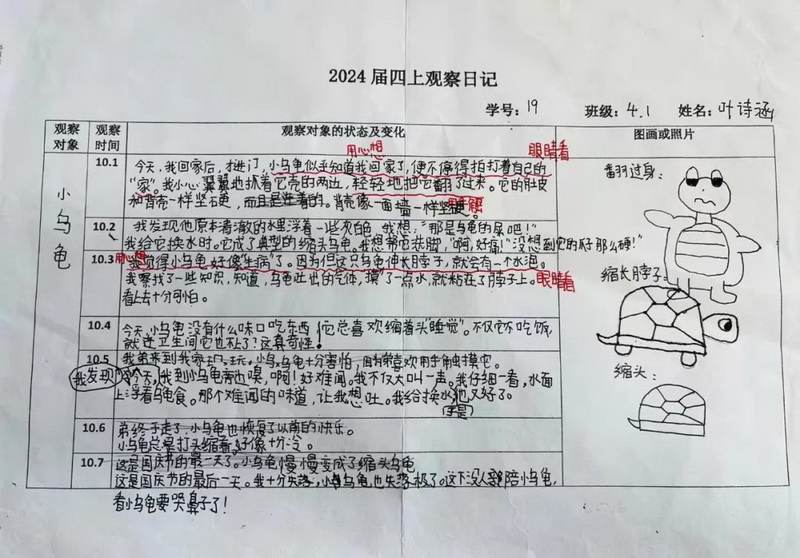 2024 届四上观察日记
学号：19 班级：4.1 姓名：叶诗涵
观察对象 观察时间 观察对象的状态及变化 图画或照片
小乌龟
用心想 眼睛看
10.1 今天，我回家后，才进门，小乌龟似乎知道我回家了，便不停得拍打着自己的
"家"。我小心翼翼地抓着它壳的两边，轻轻地把它翻了过来。它的肚皮
和背壳一样坚硬，而且是连着的。背壳像一面墙一样坚硬。
10.2 我发现他原本清澈的水里浮着一些灰色，我想："那是乌龟的尿吧！"
我给它换水时。它成了典型的缩头乌龟。我想帮它获脚，"啊，好痛！"没想到它的爪那么硬！"
用心想
10.3 我觉得小乌龟好像"生病"了。因为但这只乌龟伸长脖子，就会有一个水泡。
我察找了一些知识，知道，乌龟吐出的气体，摸了一点水，就粘在了脖子上。 眼睛看
看上去十分可怕。
10.4 今天，小乌龟没有什么味口吃东西，它总喜欢缩着头"睡觉"。不仅它不吃饭，
就连卫生间它也不上了？这真奇怪！
10.5 我弟来到我家玩，小乌龟十分害怕，因为弟喜欢用手触摸它。
我发现 今天，我到小乌龟旁边嗅，啊！好难闻。我不仅大叫一声。我仔细一看，水面
上浮着乌龟食。那个难闻的味道，让我想吐。我给换水它又好了。
于是
10.6 弟终于走了，小乌龟也恢复了以前的快乐。
小乌龟总是打头缩着，好像十分冷。
10.7 这是国庆节的最后一天了。小乌龟慢慢变成了缩头乌龟
这是国庆节的最后一天。我十分失落，小乌龟也失落极了。这下没人陪小乌龟，
看小乌龟要哭鼻子了！
翻过身：
缩长脖子：
缩头：